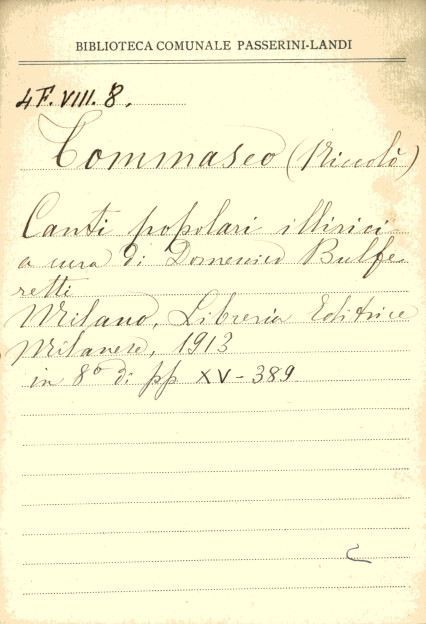 BIBLIOTECA COMUNALE PASSERINI-LANDI
4F.VIII.8.
Tommaseo (Niccolò)
Canti popolari illirici
a cura di Domenico Bulfe
retti
Milano, Libreria Editrice
Milanese, 1913
in 8º di pp XV-389